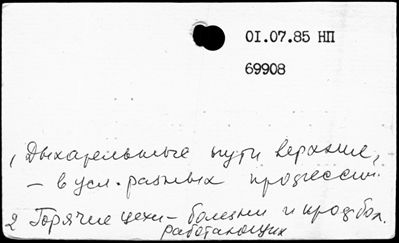 01.07.85 НП
69908
1 Дыхательные пути верхние,
– в усл. разных профессий.
2 Горячие цехи – болезни и проф. бол.
работающих